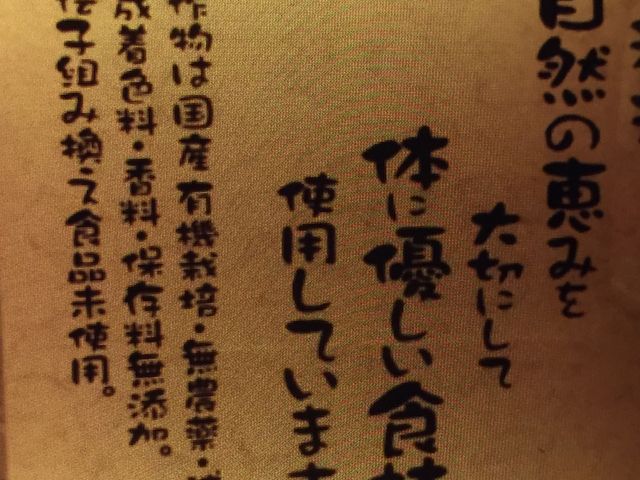 自然の恵みを
大切にして
体に優しい食材
使用しています
作物は国産有機栽培・無農薬・
成着色料・香料・保存料無添加。
伝子組み換え食品未使用。